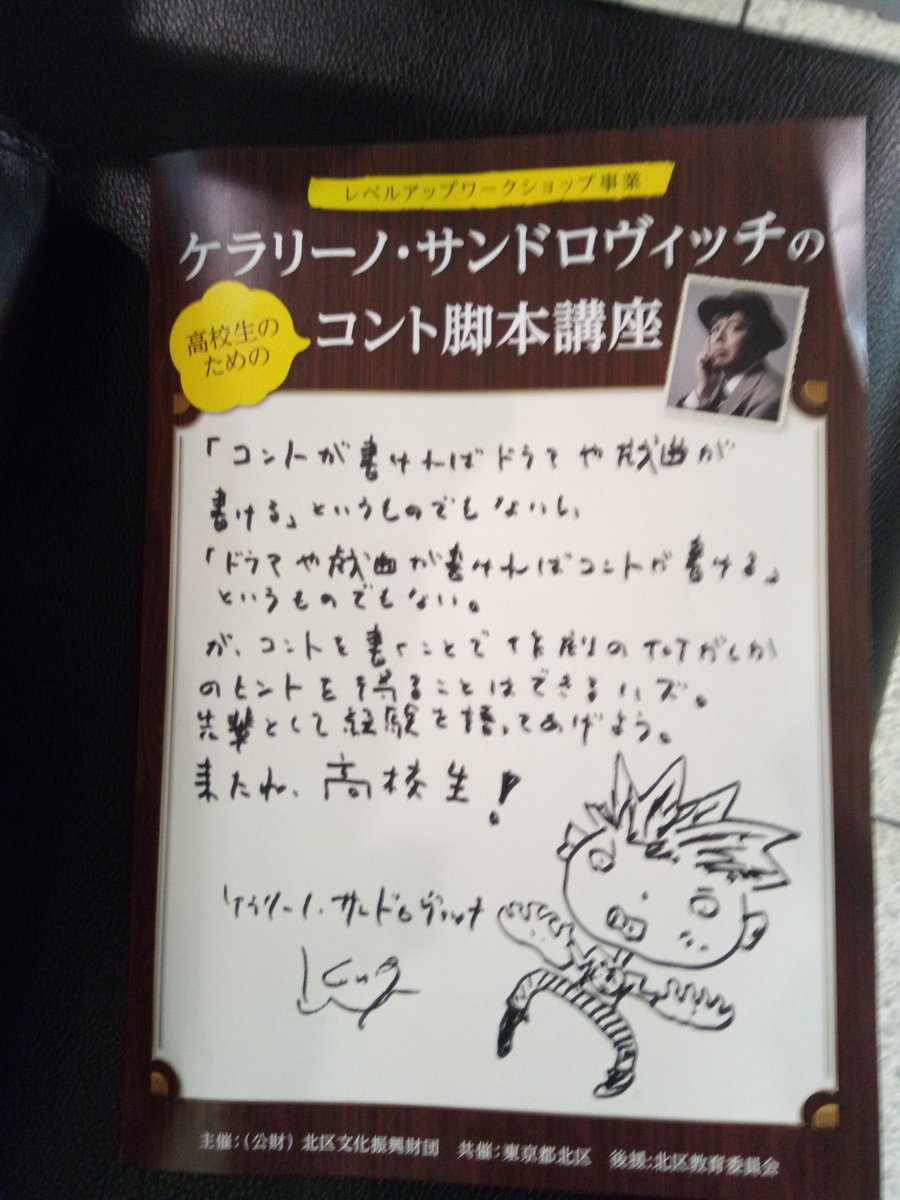 レベルアップワークショップ事業
ケラリーノ・サンドロヴィッチの
高校生の
ための
コント脚本講座
「コントが書ければドラマや戯曲が
書ける」というものでもないし、
「ドラマや戯曲が書ければコントが書ける」
というものでもない。
が、コントを書くことで作劇の何がしか
のヒントを得ることはできるハズ。
先輩として経験を語ってあげよう。
来たれ、高校生!
ケラリーノ・サンドロヴィッチ
主催:(公財)北区文化振興財団 共催:東京都北区 後援:北区教育委員会